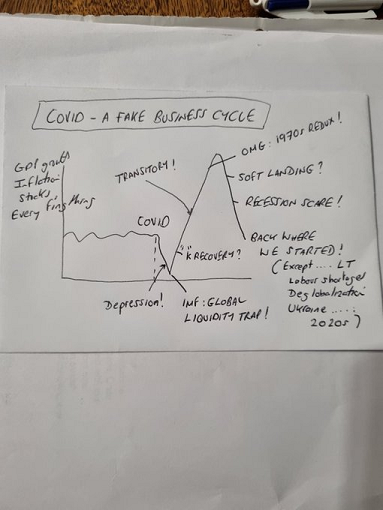 COVID - A FAKE BUSINESS CYCLE
GDP growth
Inflation
stocks,
Every f'ing thing
TRANSITORY!
OMG: 1970s REDUX!
SOFT LANDING?
RECESSION SCARE!
COVID
"K" RECOVERY?
BACK WHERE
WE STARTED!
(Except .... LT
Labour shortages
Deglobalization
Ukraine .....
2020s)
Depression!
IMF: GLOBAL
LIQUIDITY TRAP!